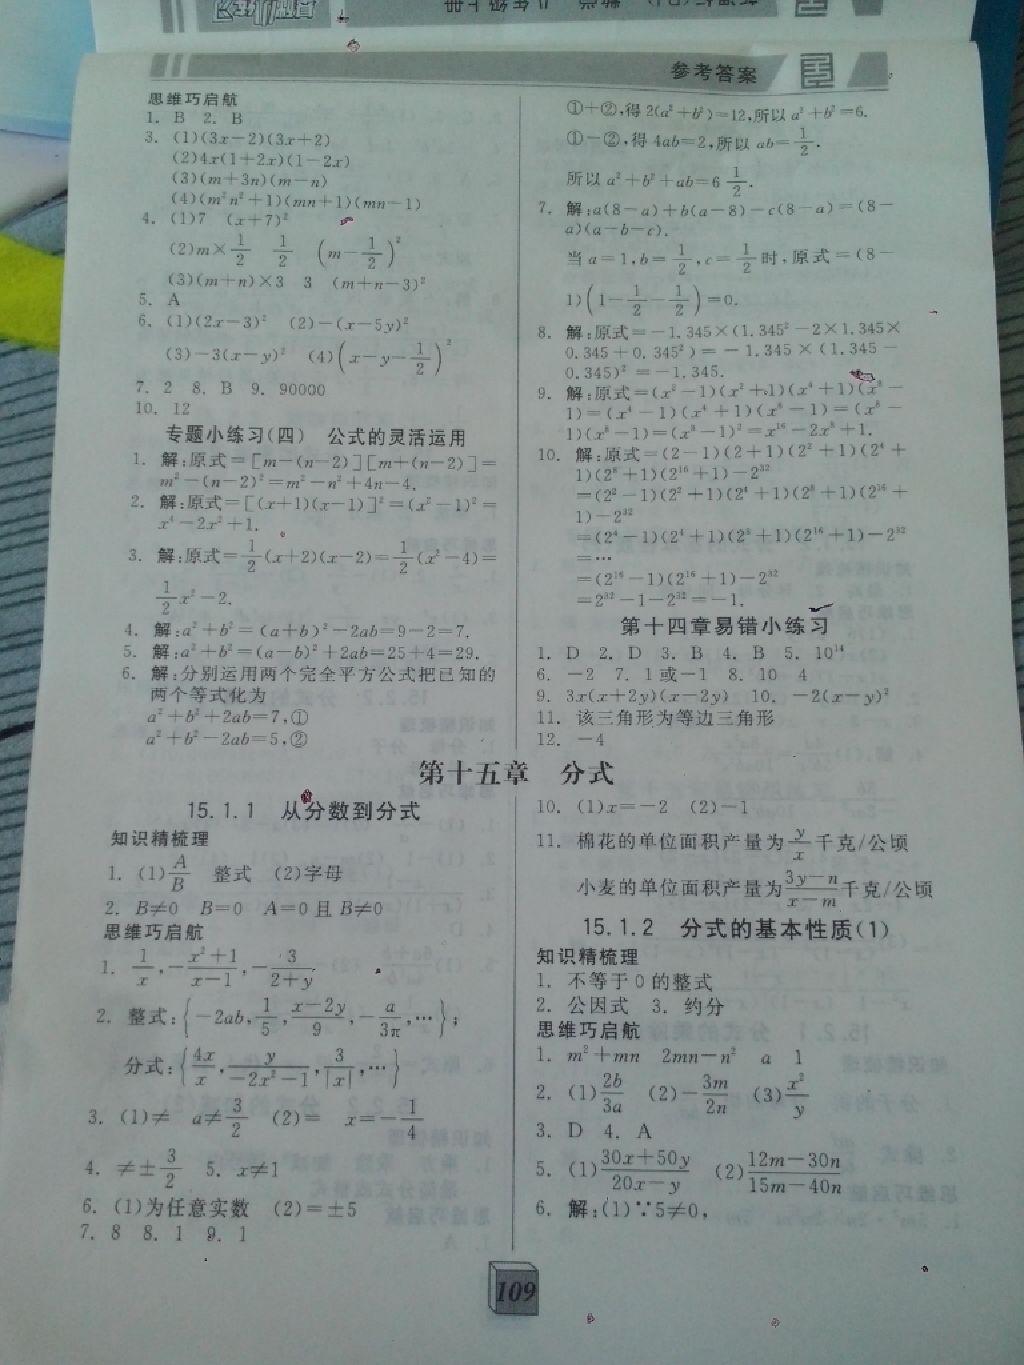 参考答案
思维巧启航
1. B 2. B
3. (1)(3x-2)(3x+2)
(2)4x(1+2x)(1-2x)
(3)(m+3n)(m-n)
(4)(m²n²+1)(mn+1)(mn-1)
4. (1)7 (x+7)²
(2)m×1/2 1/2 (m-1/2)²
(3)(m+n)×3 3 (m+n-3)²
5. A
6. (1)(2x-3)² (2)-(x-5y)²
(3)-3(x-y)² (4)(x-y-1/2)²
7. 2 8. B 9. 90000
10. 12
专题小练习(四) 公式的灵活运用
1. 解:原式=[m-(n-2)][m+(n-2)]=
m²-(n-2)²=m²-n²+4n-4.
2. 解:原式=[(x+1)(x-1)]²=(x²-1)²=
x⁴-2x²+1.
3. 解:原式=1/2(x+2)(x-2)=1/2(x²-4)=
1/2x²-2.
4. 解:a²+b²=(a+b)²-2ab=9-2=7.
5. 解:a²+b²=(a-b)²+2ab=25+4=29.
6. 解:分别运用两个完全平方公式把已知的
两个等式化为
a²+b²+2ab=7,①
a²+b²-2ab=5,②
①+②,得 2(a²+b²)=12,所以 a²+b²=6.
①-②,得 4ab=2,所以 ab=1/2.
所以 a²+b²+ab=6 1/2.
7. 解:a(8-a)+b(a-8)-c(8-a)=(8-
a)(a-b-c).
当 a=1,b=1/2,c=1/2时,原式=(8-
1)(1-1/2-1/2)=0.
8. 解:原式=-1.345×(1.345²-2×1.345×
0.345+0.345²)=-1.345×(1.345-
0.345)²=-1.345.
9. 解:原式=(x²-1)(x²+1)(x⁴+1)(x⁸-
1)=(x⁴-1)(x⁴+1)(x⁸-1)=(x⁸-
1)(x⁸-1)=(x⁸-1)²=x¹⁶-2x⁸+1.
10. 解:原式=(2-1)(2+1)(2²+1)(2⁴+
1)(2⁸+1)(2¹⁶+1)-2³²
=(2²-1)(2²+1)(2⁴+1)(2⁸+1)(2¹⁶+
1)-2³²
=(2⁴-1)(2⁴+1)(2⁸+1)(2¹⁶+1)-2³²
=…
=(2¹⁶-1)(2¹⁶+1)-2³²
=2³²-1-2³²=-1.
第十四章易错小练习
1. D 2. D 3. B 4. B 5. 10¹⁴
6. -2 7. 1或-1 8. 10 4
9. 3x(x+2y)(x-2y) 10. -2(x-y)²
11. 该三角形为等边三角形
12. -4
第十五章 分式
15.1.1 从分数到分式
知识精梳理
1. (1)A/B 整式 (2)字母
2. B≠0 B=0 A=0且B≠0
思维巧启航
1. 1/x,-(x²+1)/(x-1),-3/(2+y)
2. 整式:{-2ab,1/5,(x-2y)/9,-a/3π,…};
分式:{4x/x,y/(-2x²-1),3/|x|,…}
3. (1)≠ a≠3/2 (2)= x=-1/4
4. ≠±3/2 5. x≠1
6. (1)为任意实数 (2)=±5
7. 8 8. 1 9. 1
10. (1)x=-2 (2)-1
11. 棉花的单位面积产量为y/x千克/公顷
小麦的单位面积产量为(3y-n)/(x-m)千克/公顷
15.1.2 分式的基本性质(1)
知识精梳理
1. 不等于0的整式
2. 公因式 3. 约分
思维巧启航
1. m²+mn 2mn-n² a 1
2. (1)2b/3a (2)-3m/2n (3)x²/y
3. D 4. A
5. (1)(30x+50y)/(20x-y) (2)(12m-30n)/(15m-40n)
6. 解:(1)∵5≠0,
109